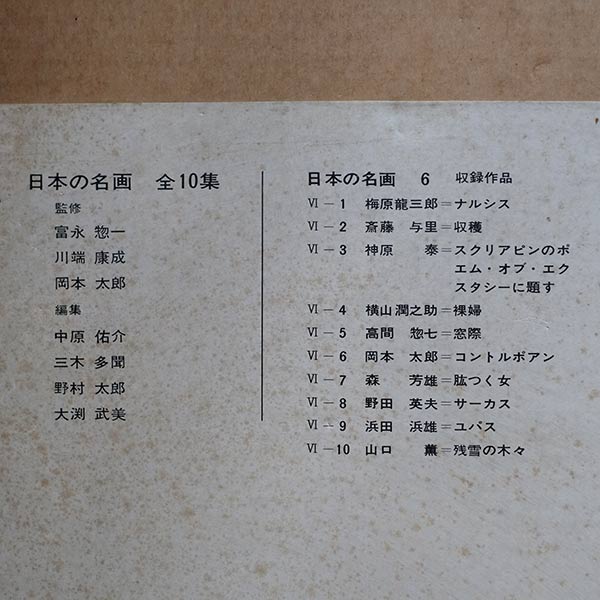 日本の名画 全10集
監修
富永 惣一
川端 康成
岡本 太郎
編集
中原 佑介
三木 多聞
野村 太郎
大渕 武美
日本の名画 6 収録作品
Ⅵ－1 梅原龍三郎＝ナルシス
Ⅵ－2 斎藤 与里＝収穫
Ⅵ－3 神原 泰＝スクリアビンのポ
エム・オブ・エク
スタシーに題す
Ⅵ－4 横山潤之助＝裸婦
Ⅵ－5 高間 惣七＝窓際
Ⅵ－6 岡本 太郎＝コントルポアン
Ⅵ－7 森 芳雄＝肱つく女
Ⅵ－8 野田 英夫＝サーカス
Ⅵ－9 浜田 浜雄＝ユパス
Ⅵ－10 山口 薫＝残雪の木々